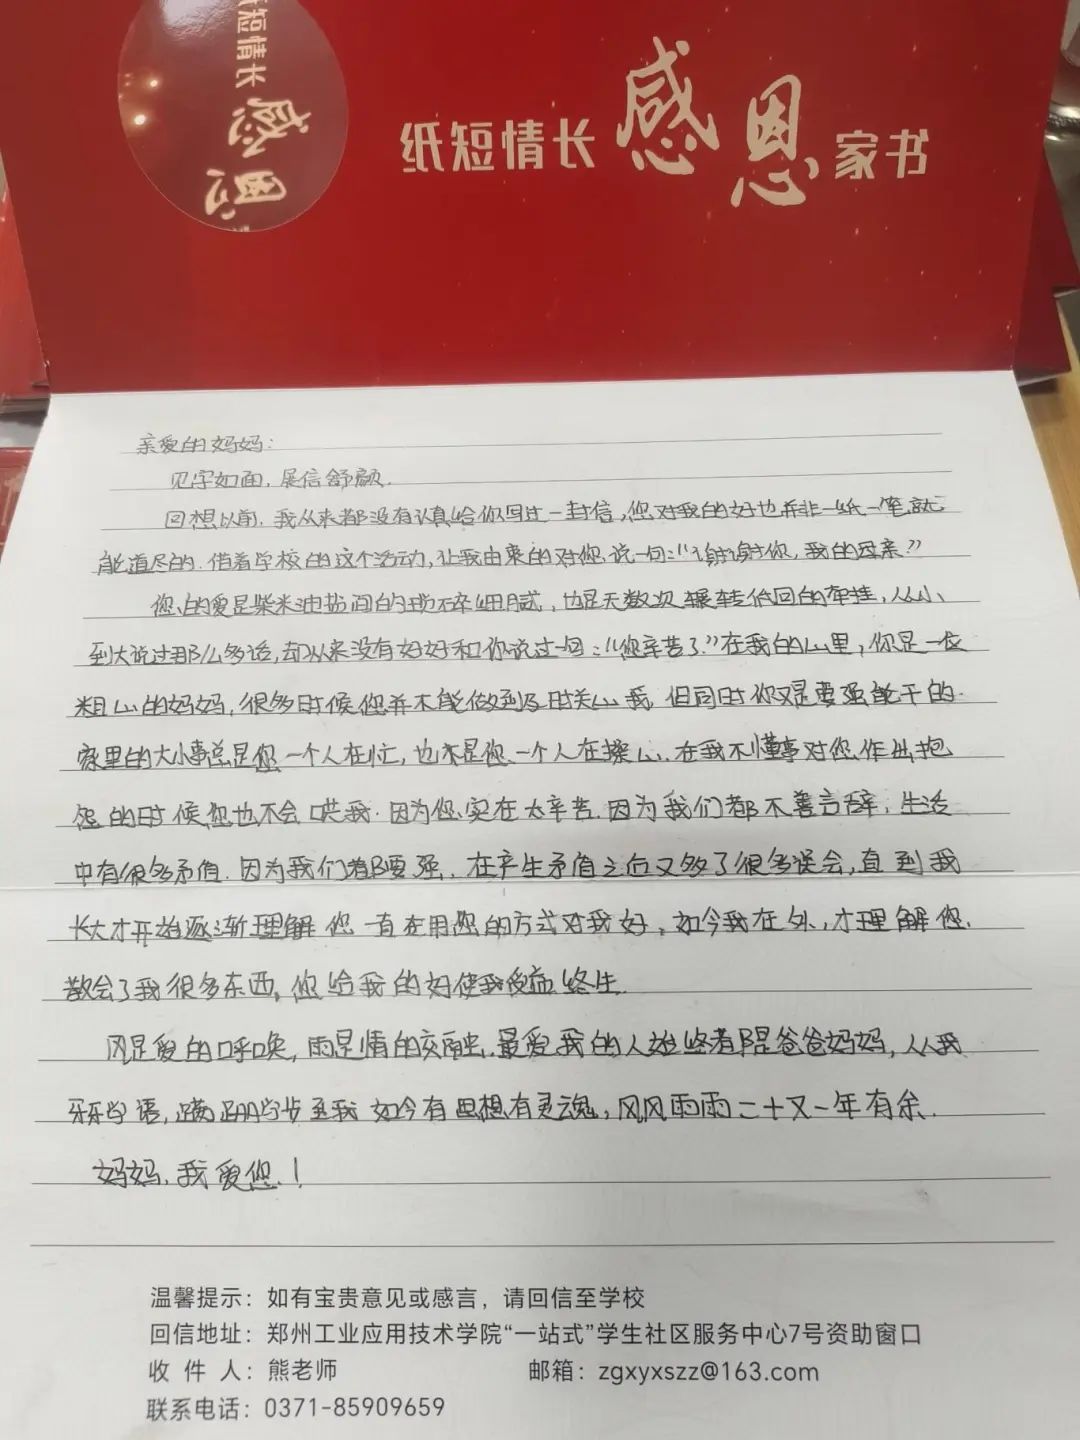 纸短情长
感恩
纸短情长感恩家书
亲爱的妈妈：
见字如面，展信舒颜.
回想以前，我从来都没有认真给你写过一封信，您对我的好也并非一纸一笔就
能道尽的.借着学校的这个活动，让我由衷的对您说一句：“谢谢你，我的母亲”
您的爱是柴米油盐间的琐碎细腻，也是无数次辗转低回的牵挂，从小
到大说过那么多话，却从来没有好好和你说过一句：“您辛苦了”在我的心里，你是一位
粗心的妈妈，很多时候您并不能做到及时关心我，但同时你又是要强能干的.
家里的大小事总是您一个人在忙，也不是您一个人在操心.在我不懂事对您作出抱
怨的时候您也不会哄我.因为您实在太辛苦.因为我们都不善言辞，生活
中有很多矛盾.因为我们都要强.在产生矛盾之后又多了很多误会，直到我
长大才开始逐渐理解您一直在用您的方式对我好，如今我在外，才理解您.
教会了我很多东西，您给我的好使我受益终生.
风是爱的呼唤，雨是情的交融.最爱我的人始终都是爸爸妈妈，从我
牙牙学语，蹒跚学步至我如今有思想有灵魂，风风雨雨二十又一年有余.
妈妈，我爱您！
温馨提示：如有宝贵意见或感言，请回信至学校
回信地址：郑州工业应用技术学院“一站式”学生社区服务中心7号资助窗口
收 件 人：熊老师 邮箱：zgxyxszz@163.com
联系电话：0371-85909659